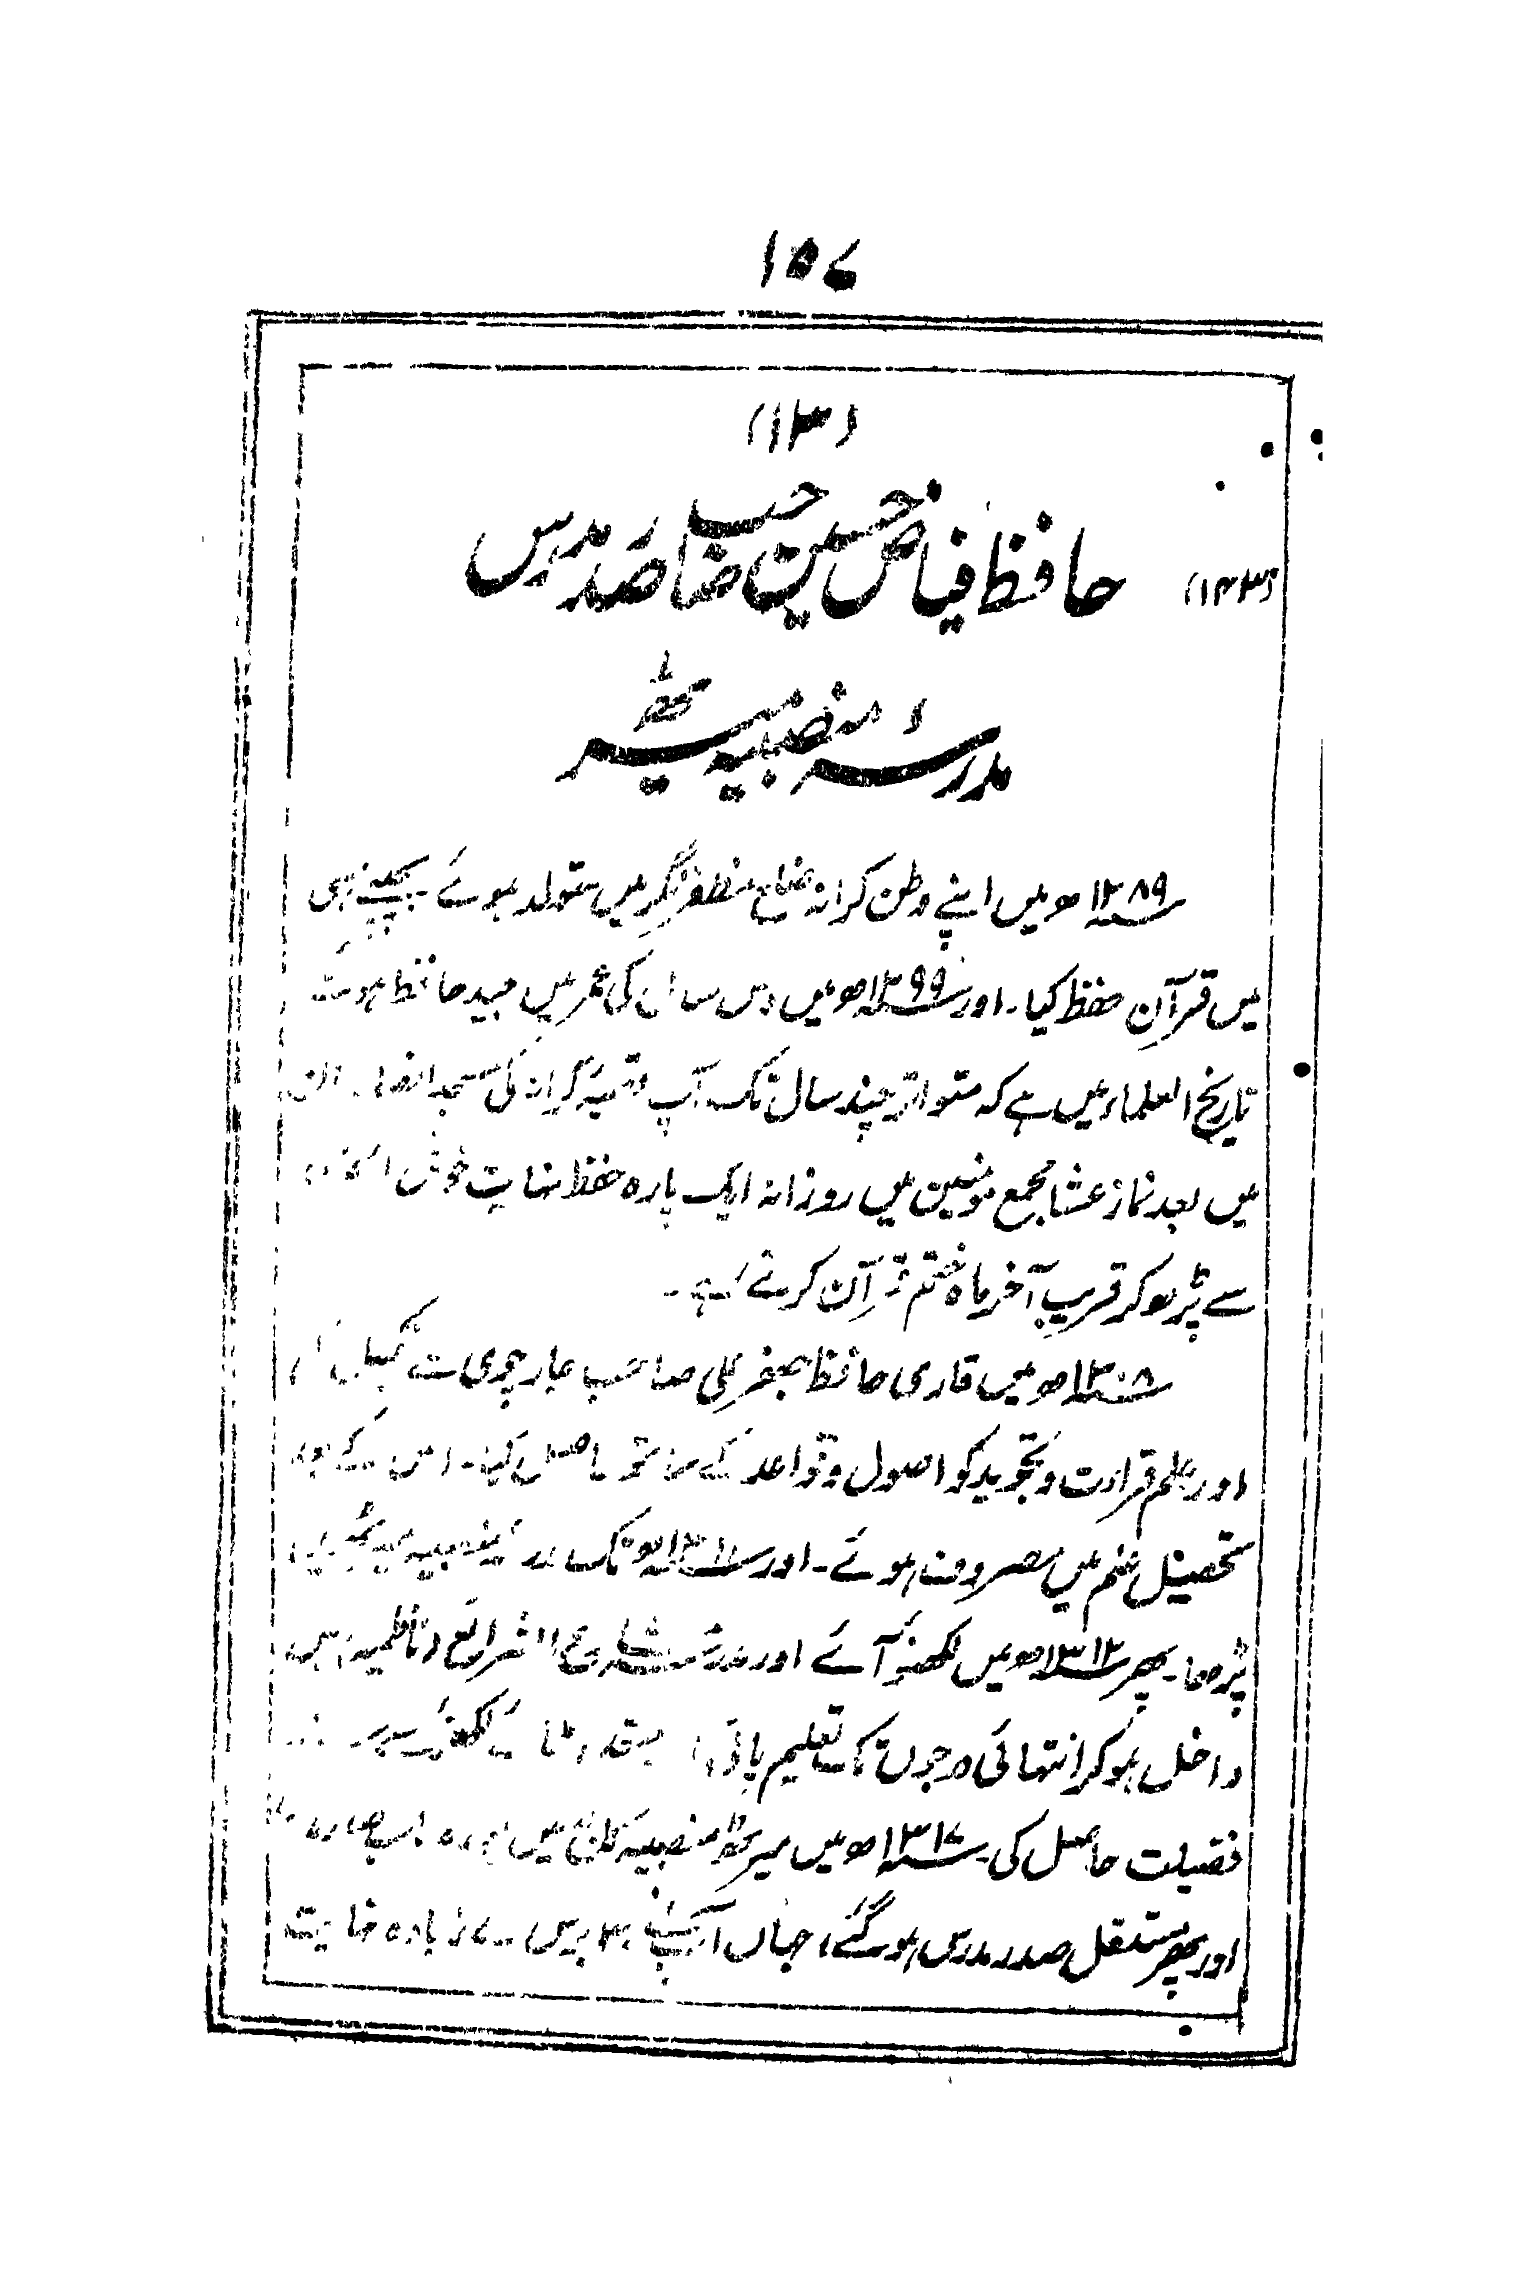 ۱۵۷
(۱۳)
(۱۴۳) حافظ فیاض حسین صاحب صدر مدرس
مدرسۂ منصبیہ میرٹھ
۱۲۸۹ھ میں اپنے وطن کرانہ ضلع مظفر نگر میں متولد ہوئے۔ بچپنے ہی
میں قرآن حفظ کیا۔ اور ۱۲۹۹ھ میں دس سال کی عمر میں جید حافظ ہوئے
تاریخ العلماء میں ہے کہ متواتر چند سال تک آپ قصبۂ کرانہ کی مسجد
میں بعد نماز عشا مجمع مومنین میں روزانہ ایک پارہ حفظ نہایت خوش
سے پڑھ کر قریب آخر ماہ ختم قرآن کرتے رہے۔
۱۳۰۸ھ میں قاری حافظ جعفر علی صاحب جارچوی سے تکمیل
اور علم قرارت و تجوید کو اصول و قواعد کے ساتھ حاصل کیا۔ اس کے بعد
تحصیل علم میں مصروف ہوئے۔ اور تک مدرسۂ منصبیہ میرٹھ میں
پڑھا۔ پھر ۱۳۱۲ھ میں لکھنؤ آئے اور مدرسۂ مشارع الشرائع (ناظمیہ) میں
داخل ہوکر انتہائی درجوں تک تعلیم پائی، لکھنؤ سے سند
فضیلت حاصل کی۔ ۱۳۱۷ھ میں میرٹھ منصبیہ کالج میں
اور پھر مستقل صدر مدرس ہوگئے، جہاں آپ نے ۳۰ برس سے زیادہ